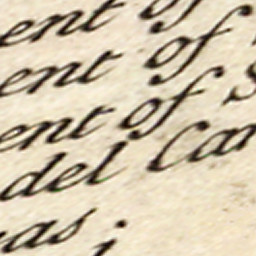 ent of
ent of
ent of S
del Car
as;